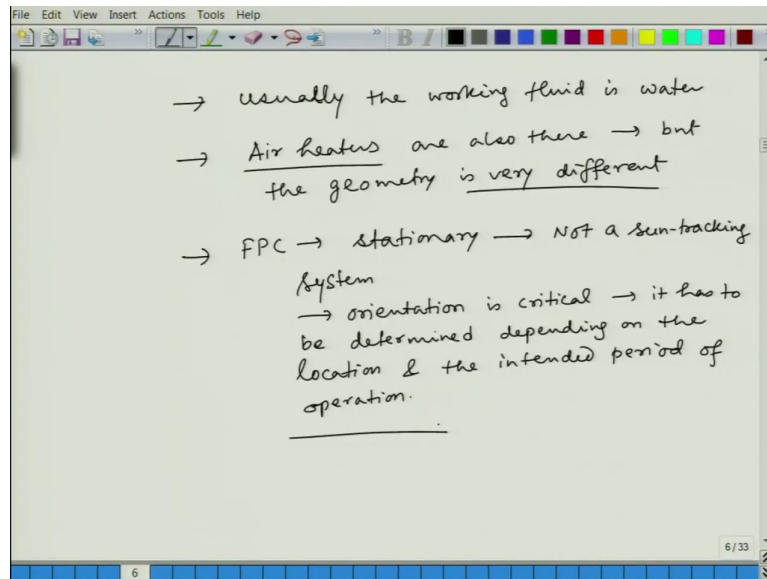 File Edit View Insert Actions Tools Help
B I
→ usually the working fluid is water
→ Air heaters are also there → but
the geometry is very different
→ FPC → stationary → Not a sun-tracking
system
→ orientation is critical → it has to
be determined depending on the
location & the intended period of
operation.
6/33
6